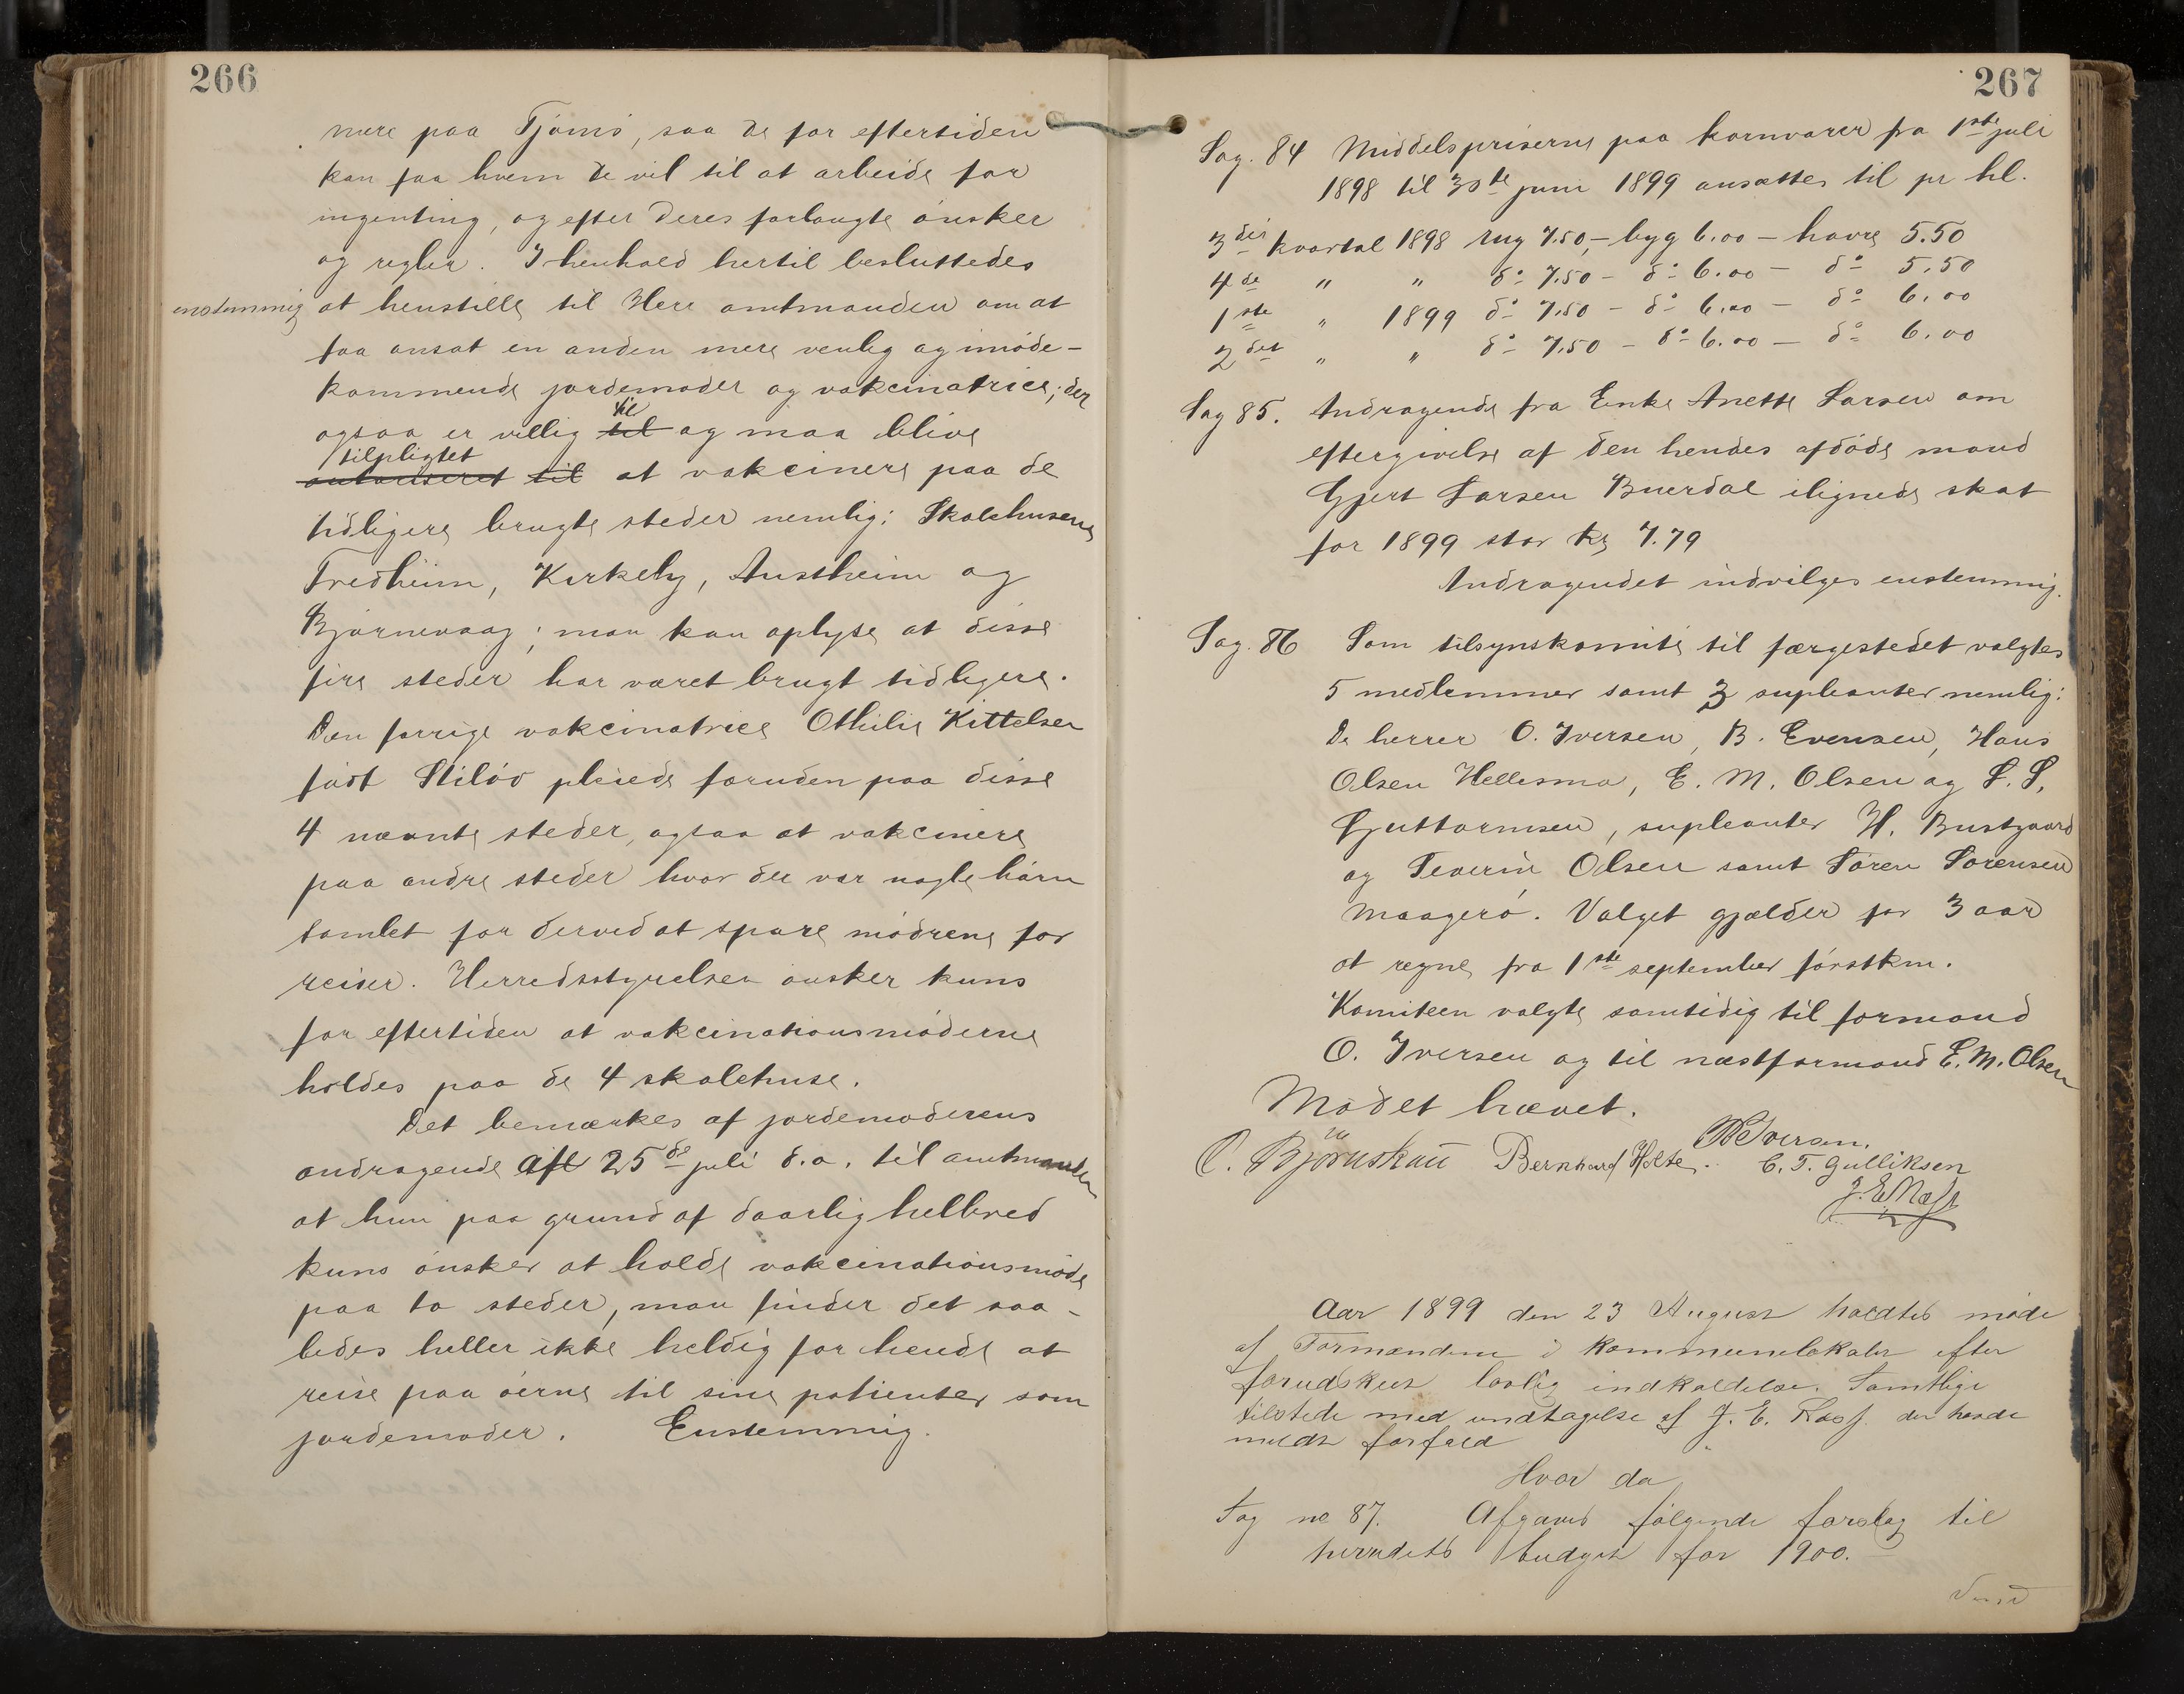 266
mere paa Tjömö, saa de for eftertiden
kan faa hvem de vil til at arbeide for
ingenting, og efter deres forlangte önsker
og regler. I henhold hertil besluttedes
enstemmig at henstille til Herr amtmanden om at
faa ansat en anden mere venlig og imöde-
kommende jordemoder og vakcinatrice; der
ogsaa er villig til til og maa blive
tilpligtet
autoriseret til at vakcinere paa de
tidligere brugte steder nemlig: Skolehusene
Fredheim, Kirkeby, Austheim og
Bjørnevaag; man kan oplyse at disse
fire steder har været brugt tidligere.
Den forrige vakcinatrice Othilie Kittelsen
født Stiløv pleiede foruden paa disse
4 nævnte steder, ogsaa at vakcinere
paa andre steder hvor der var nogle börn
samlet for derved at spare mödrene for
reiser. Herredsstyrelsen önsker kuns
for eftertiden at vakcinationsmöderne
holdes paa de 4 skolehuse.
Det bemærkes af jordemoderens
andragende af 25de juli d.a. til amtmanden
at hun paa grund af daarlig helbred
kuns önsker at holde vakcinationsmöde
paa to steder, man finder det saa-
ledes heller ikke heldig for hende at
reise paa öerne til sine patienter som
jordemoder. Enstemmig.
267
Sag. 84 Middelspriserne paa kornvarer fra 1ste juli
1898 til 30te juni 1899 ansættes til pr hl.
3die kvartal 1898 rug 7.50,- byg 6.00 - havre 5.50
4de " " do 7.50 - do 6.00 - do 5.50
1ste " 1899 do 7.50 - do 6.00 - do 6.00
2det " " do 7.50 - do 6.00 - do 6.00
Sag 85. Andragende fra Enke Anette Larsen om
eftergivelse af den hendes afdöde mand
Gjert Larsen Buerdal ilignede skat
for 1899 stor kr 7.79
Andragendet indvilges enstemmig.
Sag. 86 Som tilsynskomite til færgestedet valgtes
5 medlemmer samt 3 supleanter nemlig:
De herrer O. Iversen, B. Evensen, Hans
Olsen Hellesmo, E. M. Olsen og S. S.
Guttormsen, supleanter H. Bustgaard
og Severin Olsen samt Sören Sörensen
Maagerö. Valget gjælder for 3 aar
at regne fra 1ste september förstkm.
Komiteen valgte samtidig til formand
O. Iversen og til næstformand E. M. Olsen
Mödet hævet.
O. Iversen.
C. Bjørnskau Bernhard Holte. C. T. Gulliksen
J. E. Næss
Aar 1899 den 23 August holdtes möde
af Formændene i Kommunelokalet efter
forudskeet lovlig indkaldelse. Samtlige
tilstede med undtagelse af J. E. Næss. der havde
meldt forfald
Hvor da
Sag no 87. Afgaves fölgende forslag til
herredets budget for 1900.
Vend